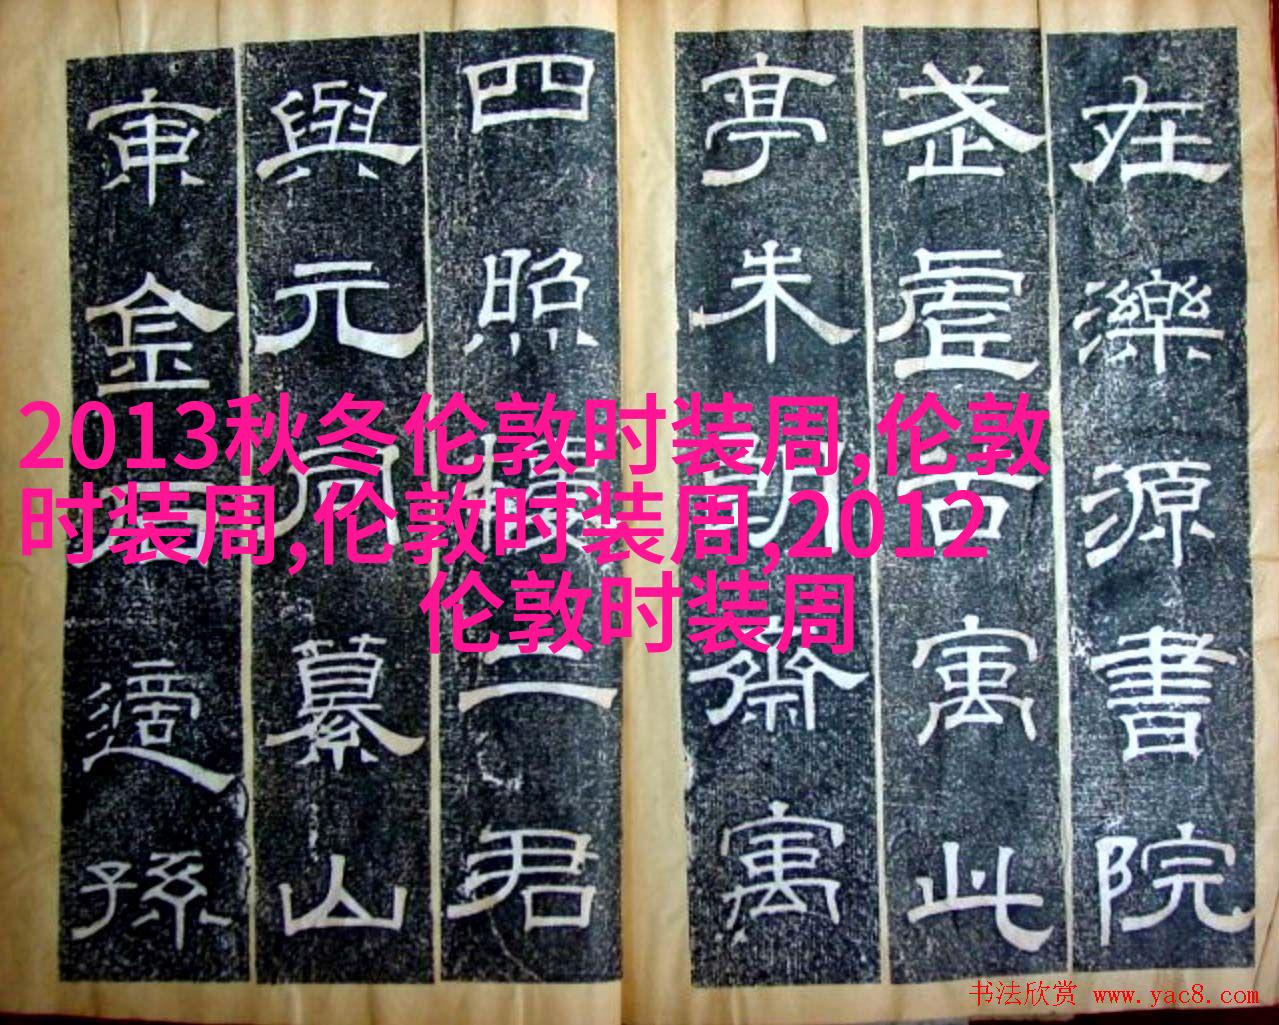 在濼源書院
武虛谷寓此
亭朱朗齋寓
四照樓二君
與元同纂山
東金石適孫
2013秋冬伦敦时装周,伦敦
时装周,伦敦时装周,2012
伦敦时装周
书法欣赏 www.yac8.com